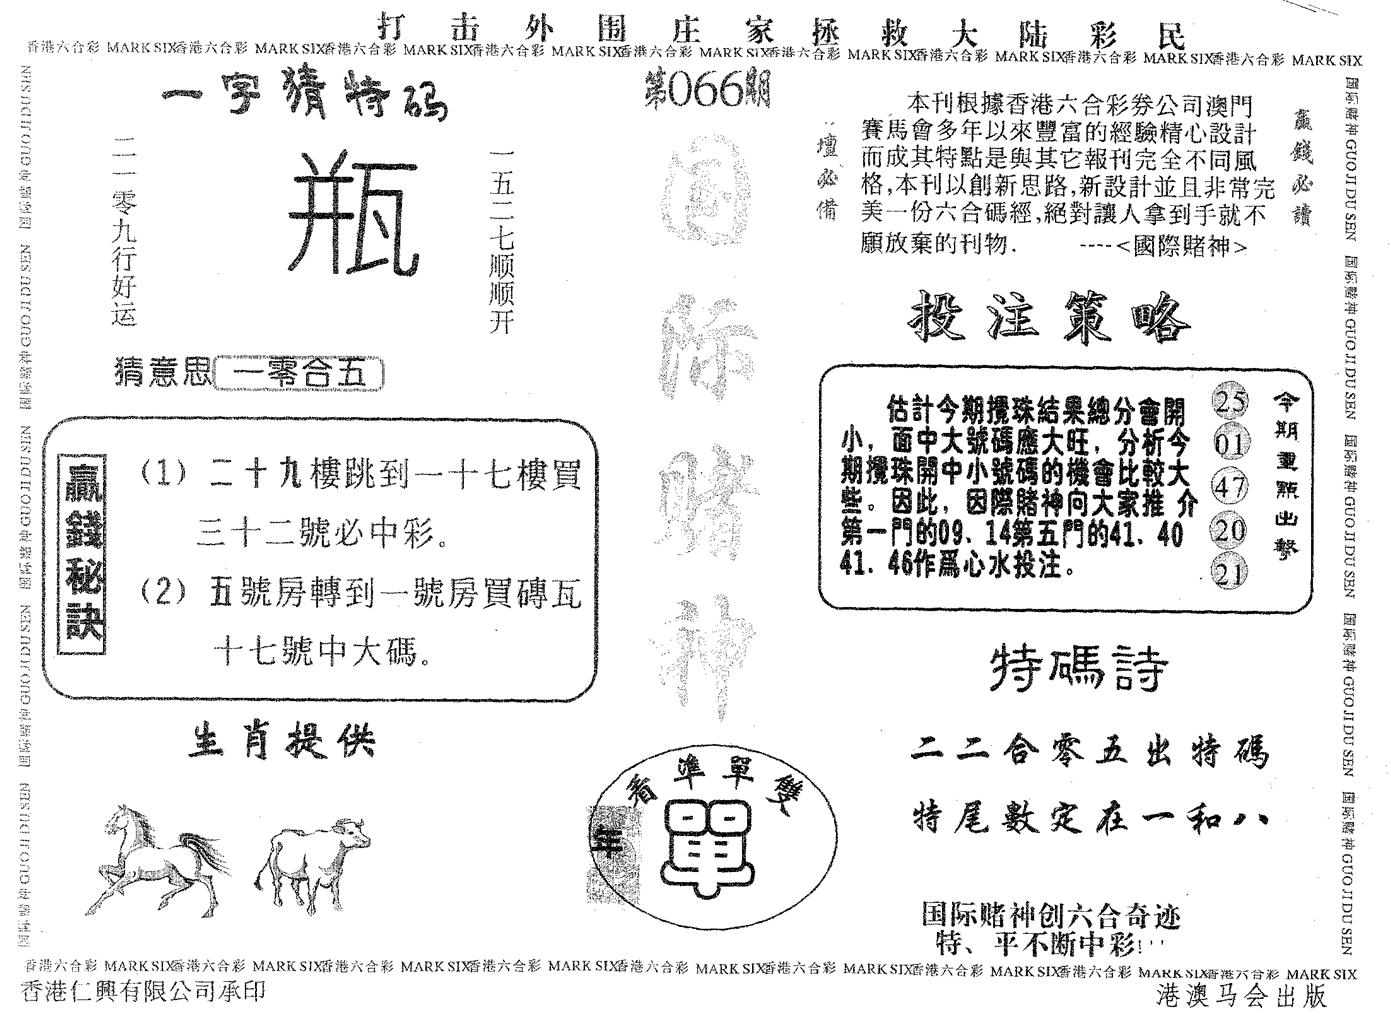 打击外围庄家拯救大陆彩民
香港六合彩 MARK SIX香港六合彩 MARK SIX香港六合彩 MARK SIX香港六合彩 MARK SIX香港六合彩 MARK SIX香港六合彩 MARK SIX香港六合彩 MARK SIX香港六合彩 MARK SIX香港六合彩 MARK SIX
一字猜特码
二一零九行好运
瓶
一五二七顺顺开
猜意思 一零合五
贏錢秘訣
(1) 二十九樓跳到一十七樓買
三十二號必中彩。
(2) 五號房轉到一號房買磚瓦
十七號中大碼。
生肖提供
第066期
国际赌神
看準單雙
年
單
壇必備
本刊根據香港六合彩券公司澳門
賽馬會多年以來豐富的經驗精心設計
而成其特點是與其它報刊完全不同風
格,本刊以創新思路,新設計並且非常完
美一份六合碼經,絕對讓人拿到手就不
願放棄的刊物. ----<國際賭神>
贏錢必讀
投注策略
估計今期攪珠結果總分會開
小，面中大號碼應大旺，分析今
期攪珠開中小號碼的機會比較大
些。因此，因際賭神向大家推 介
第一門的09. 14第五門的41. 40
41. 46作爲心水投注。
25
01
47
20
21
今期重點出擊
特碼詩
二二合零五出特碼
特尾數定在一和八
国际赌神创六合奇迹
特、平不断中彩!
国际赌神 GUO JI DU SEN 国际赌神 GUO JI DU SEN 国际赌神 GUO JI DU SEN 国际赌神 GUO JI DU SEN 国际赌神 GUO JI DU SEN
国际赌神 GUO JI DU SEN 国际赌神 GUO JI DU SEN 国际赌神 GUO JI DU SEN 国际赌神 GUO JI DU SEN 国际赌神 GUO JI DU SEN
香港六合彩 MARK SIX香港六合彩 MARK SIX香港六合彩 MARK SIX香港六合彩 MARK SIX香港六合彩 MARK SIX香港六合彩 MARK SIX香港六合彩 MARK SIX香港六合彩 MARK SIX香港六合彩 MARK SIX
香港仁興有限公司承印
港澳马会出版